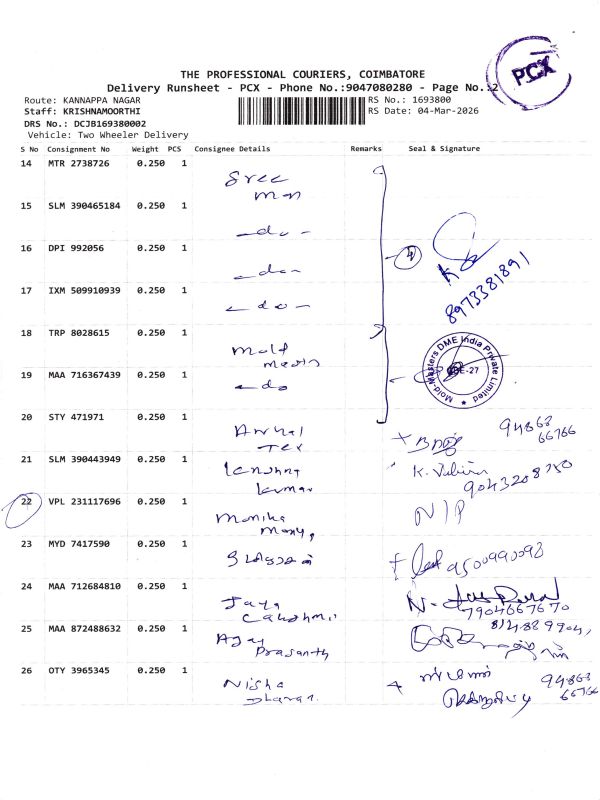 THE PROFESSIONAL COURIERS, COIMBATORE
Delivery Runsheet - PCX - Phone No.:9047080280 - Page No.:2
PCX
Route: KANNAPPA NAGAR
Staff: KRISHNAMOORTHI
DRS No.: DCJB169380002
Vehicle: Two Wheeler Delivery
RS No.: 1693800
RS Date: 04-Mar-2026
S No Consignment No Weight PCS Consignee Details Remarks Seal & Signature
14 MTR 2738726 0.250 1 Sree
15 SLM 390465184 0.250 1 -do-
16 DPI 992056 0.250 1 -do-
17 IXM 509910939 0.250 1 -do-
4
8973381891
18 TRP 8028615 0.250 1 Mold
19 MAA 716367439 0.250 1 -do
Mold-Masters DME India Private Limited
CBE-27
20 STY 471971 0.250 1
Tex
94868
66766
21 SLM 390443949 0.250 1
Kumar
9043208780
22 VPL 231117696 0.250 1 Monika
N/P
23 MYD 7417590 0.250 1
9500990098
24 MAA 712684810 0.250 1 Jaya
Lakshmi
7904667670
25 MAA 872488632 0.250 1 Ajay
Prasanth
8148899041
26 OTY 3965345 0.250 1 Nisha
94868
66766